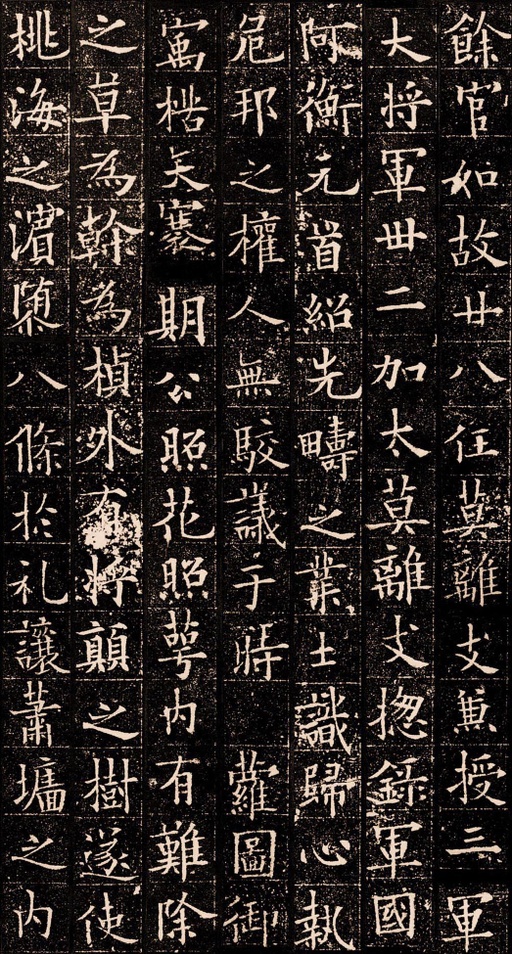 餘官如故廿八任莫離支兼授三軍
大将軍卅二加太莫離支揔錄軍國
阿衡元首紹先疇之業士識歸心執
危邦之權人無駮議于時 蘿圖御
寓楛矢褰期公照花照萼内有難除
之草為幹為楨外有将顛之樹遂使
桃海之濱隳八條於礼讓蕭墻之内